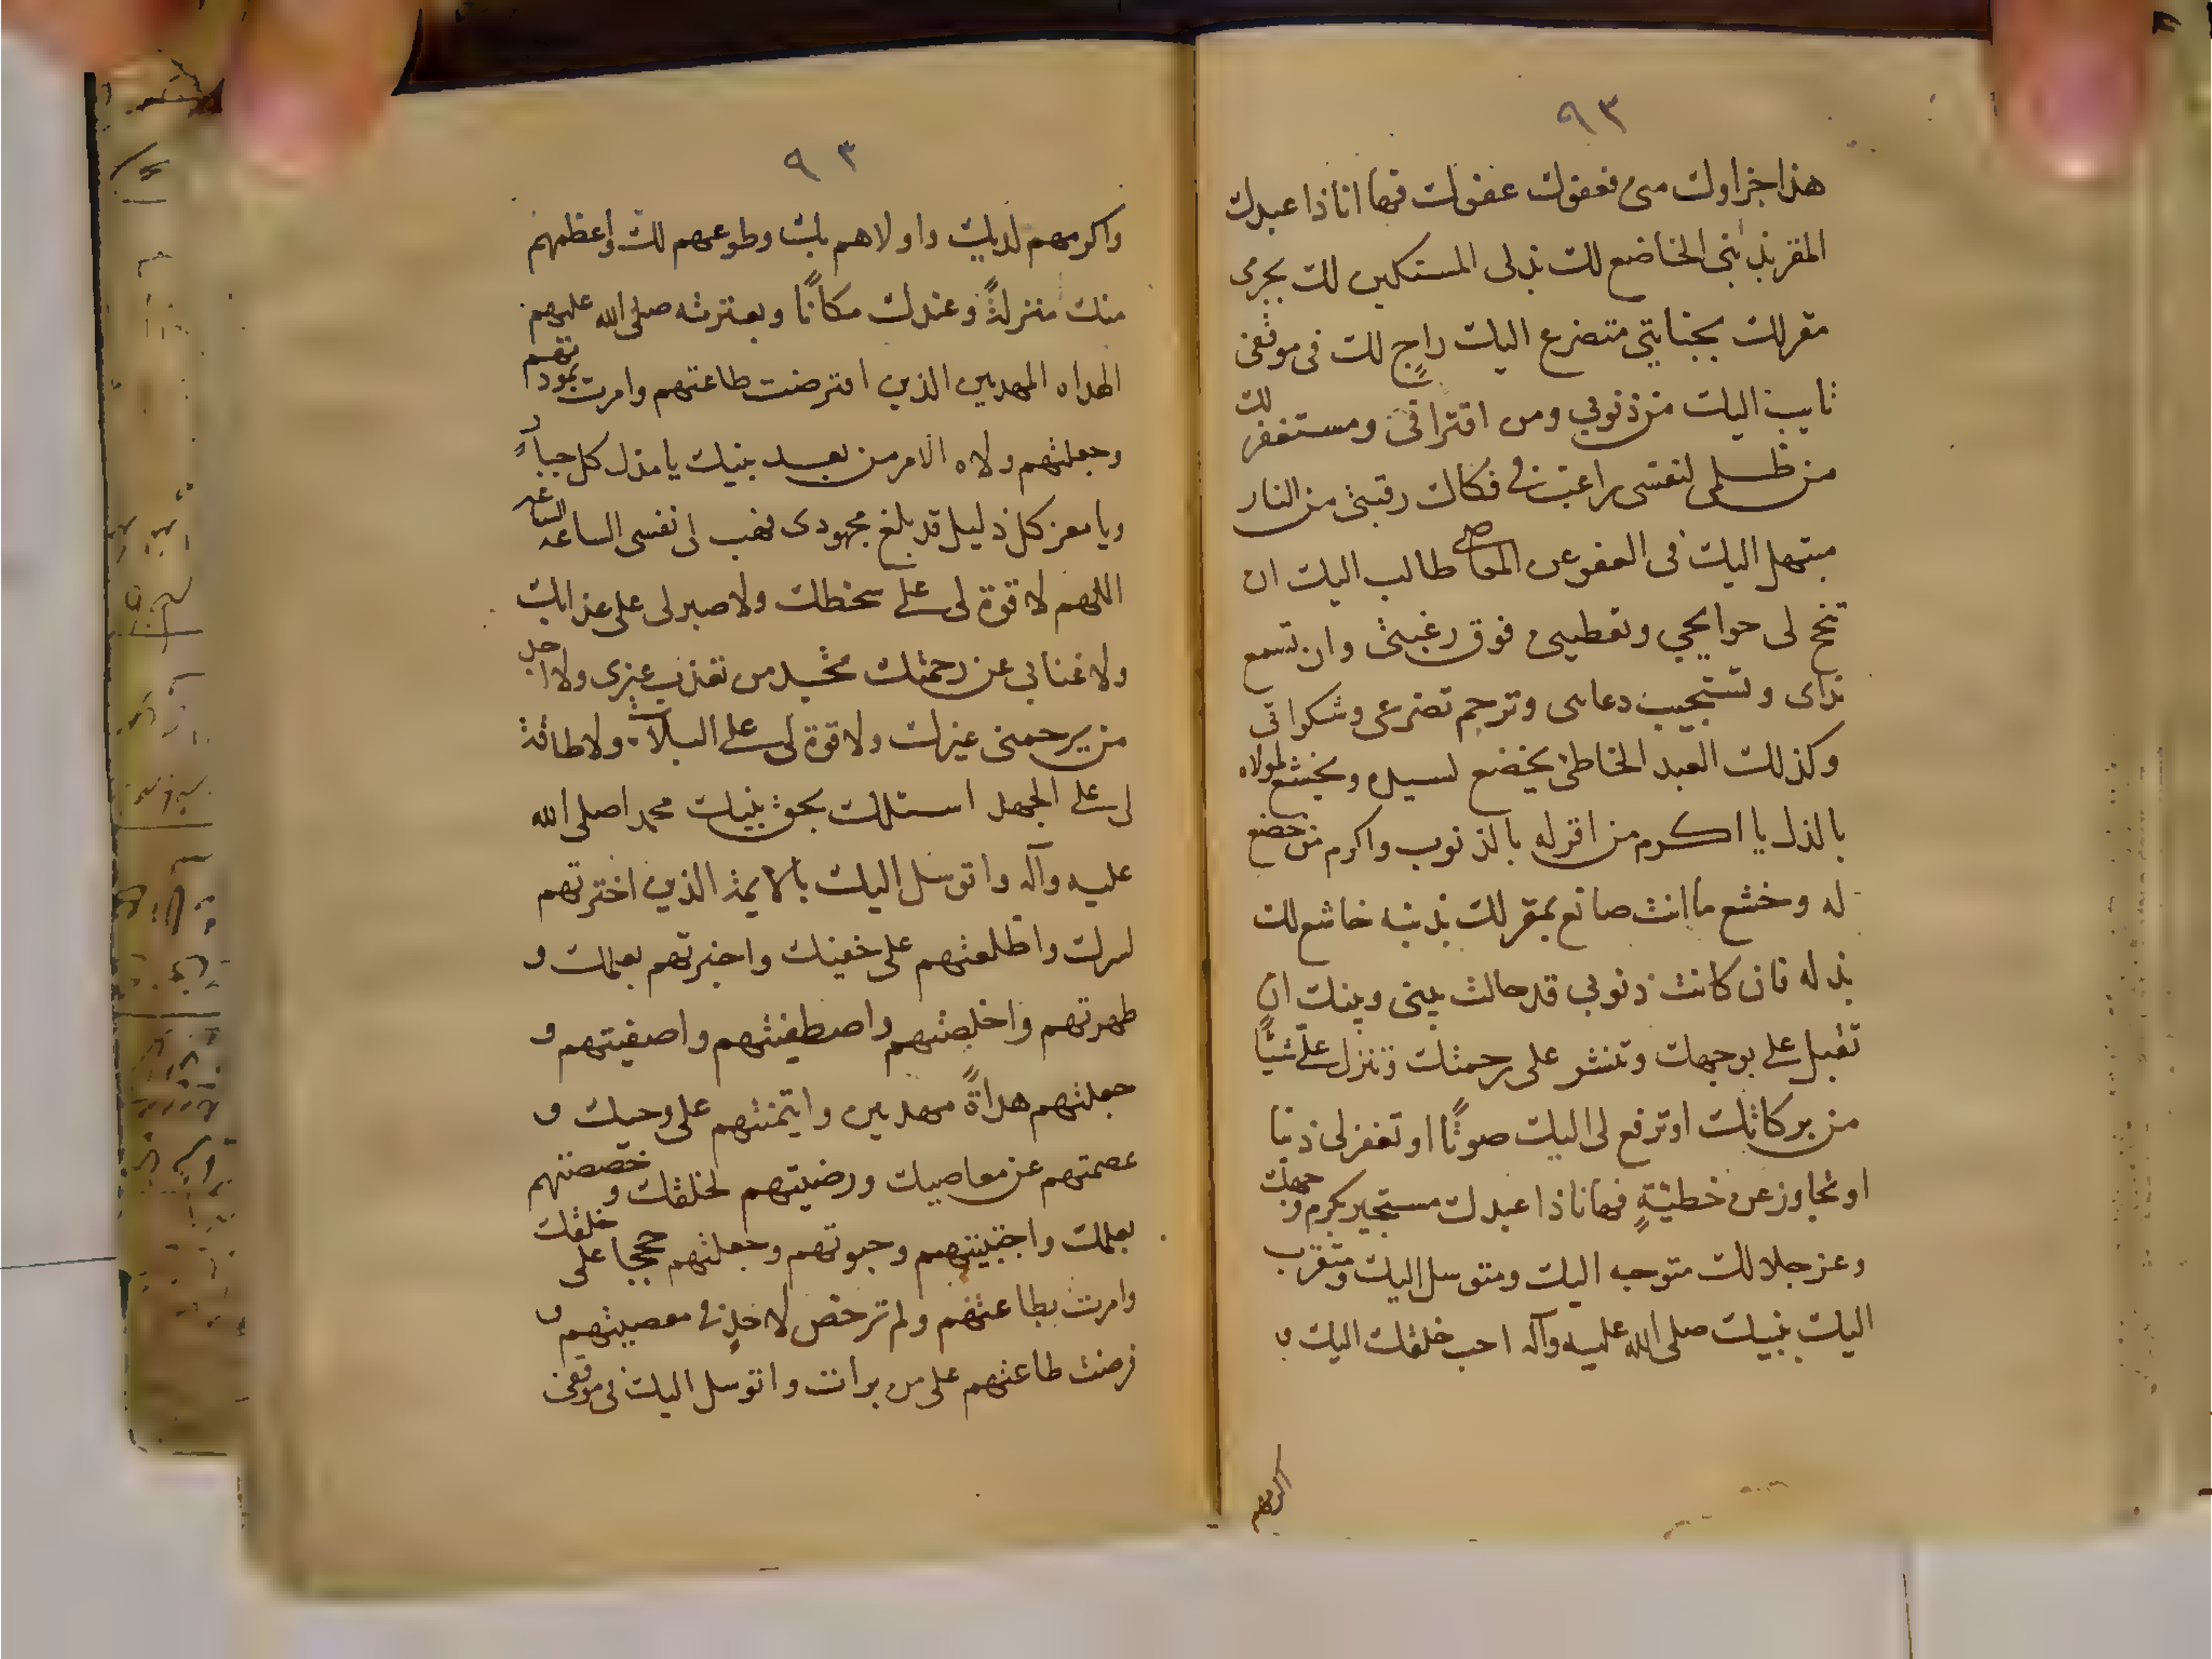 ٩٣
هذا جزاؤك منى فعفوك عفوك فها انا ذا عبدك
المقر بذنبى الخاضع لك بذلى المستكين لك بجرمى
مقر لك بجنايتى متضرع اليك راجٍ لك فى موقفى
تايب اليك من ذنوبي ومن اقترافى ومستغفر لك
من ظلمى لنفسى راغب فى فكاك رقبتى من النار
مبتهل اليك فى العفو عن المعاصى طالب اليك ان
تنجح لى حوايجي وتعطينى فوق رغبتى وان تسمع
نداى وتستجيب دعاى وترحم تضرعى وشكواتى
وكذلك العبد الخاطئ يخضع لسيده ويخشع لمولاه
بالذل يا اكرم من اقر له بالذنوب واكرم من خضع
له وخشع ما انت صانع بمقر لك بذنبه خاشع لك
بذله فان كانت ذنوبي قد حالت بينى وبينك ان
تقبل على بوجهك وتنشر على رحمتك وتنزل على شيئًا
من بركاتك او ترفع لى اليك صوتًا او تغفر لى ذنبا
او تجاوز عن خطيئةٍ فها انا ذا عبدك مستجير بكرم وجهك
وعز جلالك متوجه اليك ومتوسل اليك ومتقرب
اليك بنبيك صلى الله عليه وآله احب خلقك اليك و
اكرمهم
٩٣
واكرمهم لديك واولاهم بك وطوعهم لك واعظمهم
منك منزلةً وعندك مكانًا وبعترته صلى الله عليهم
الهداه المهديين الذين افترضت طاعتهم وامرت بمودتهم
وجعلتهم ولاه الامر من بعد بنيك يا مذل كل جبار
ويا معز كل ذليل قد بلغ مجهودى فهب لى نفسى الساعه الساعه
اللهم لا قوة لى على سخطك ولا صبر لى على عذابك
ولا غنا بى عن رحمتك تجد من تعذب غيرى ولا اجد
من يرحمنى غيرك ولا قوة لى على البلاء ولا طاقة
لى على الجهد اسئلك بحق نبيك محمد صلى الله
عليه وآله واتوسل اليك بالايمة الذين اخترتهم
لسرك واطلعتهم على خفيك واخبرتهم بعلمك و
طهرتهم واخلصتهم واصطفيتهم واصفيتهم و
جعلتهم هداةً مهديين وايتمنتهم على وحيك و
عصمتهم عن معاصيك ورضيتهم لخلقك وخصصتهم
بعلمك واجتبيتهم وحبوتهم وجعلتهم حججا على خلقك
وامرت بطاعتهم ولم ترخص لاحدٍ فى معصيتهم و
فرضت طاعتهم على من برات واتوسل اليك فى موقفى